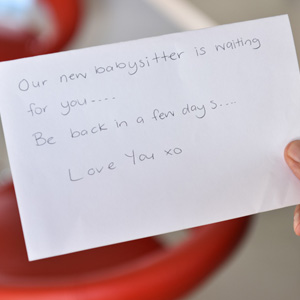 Our new babysitter is waiting
for you....
Be back in a few days....
Love You xo